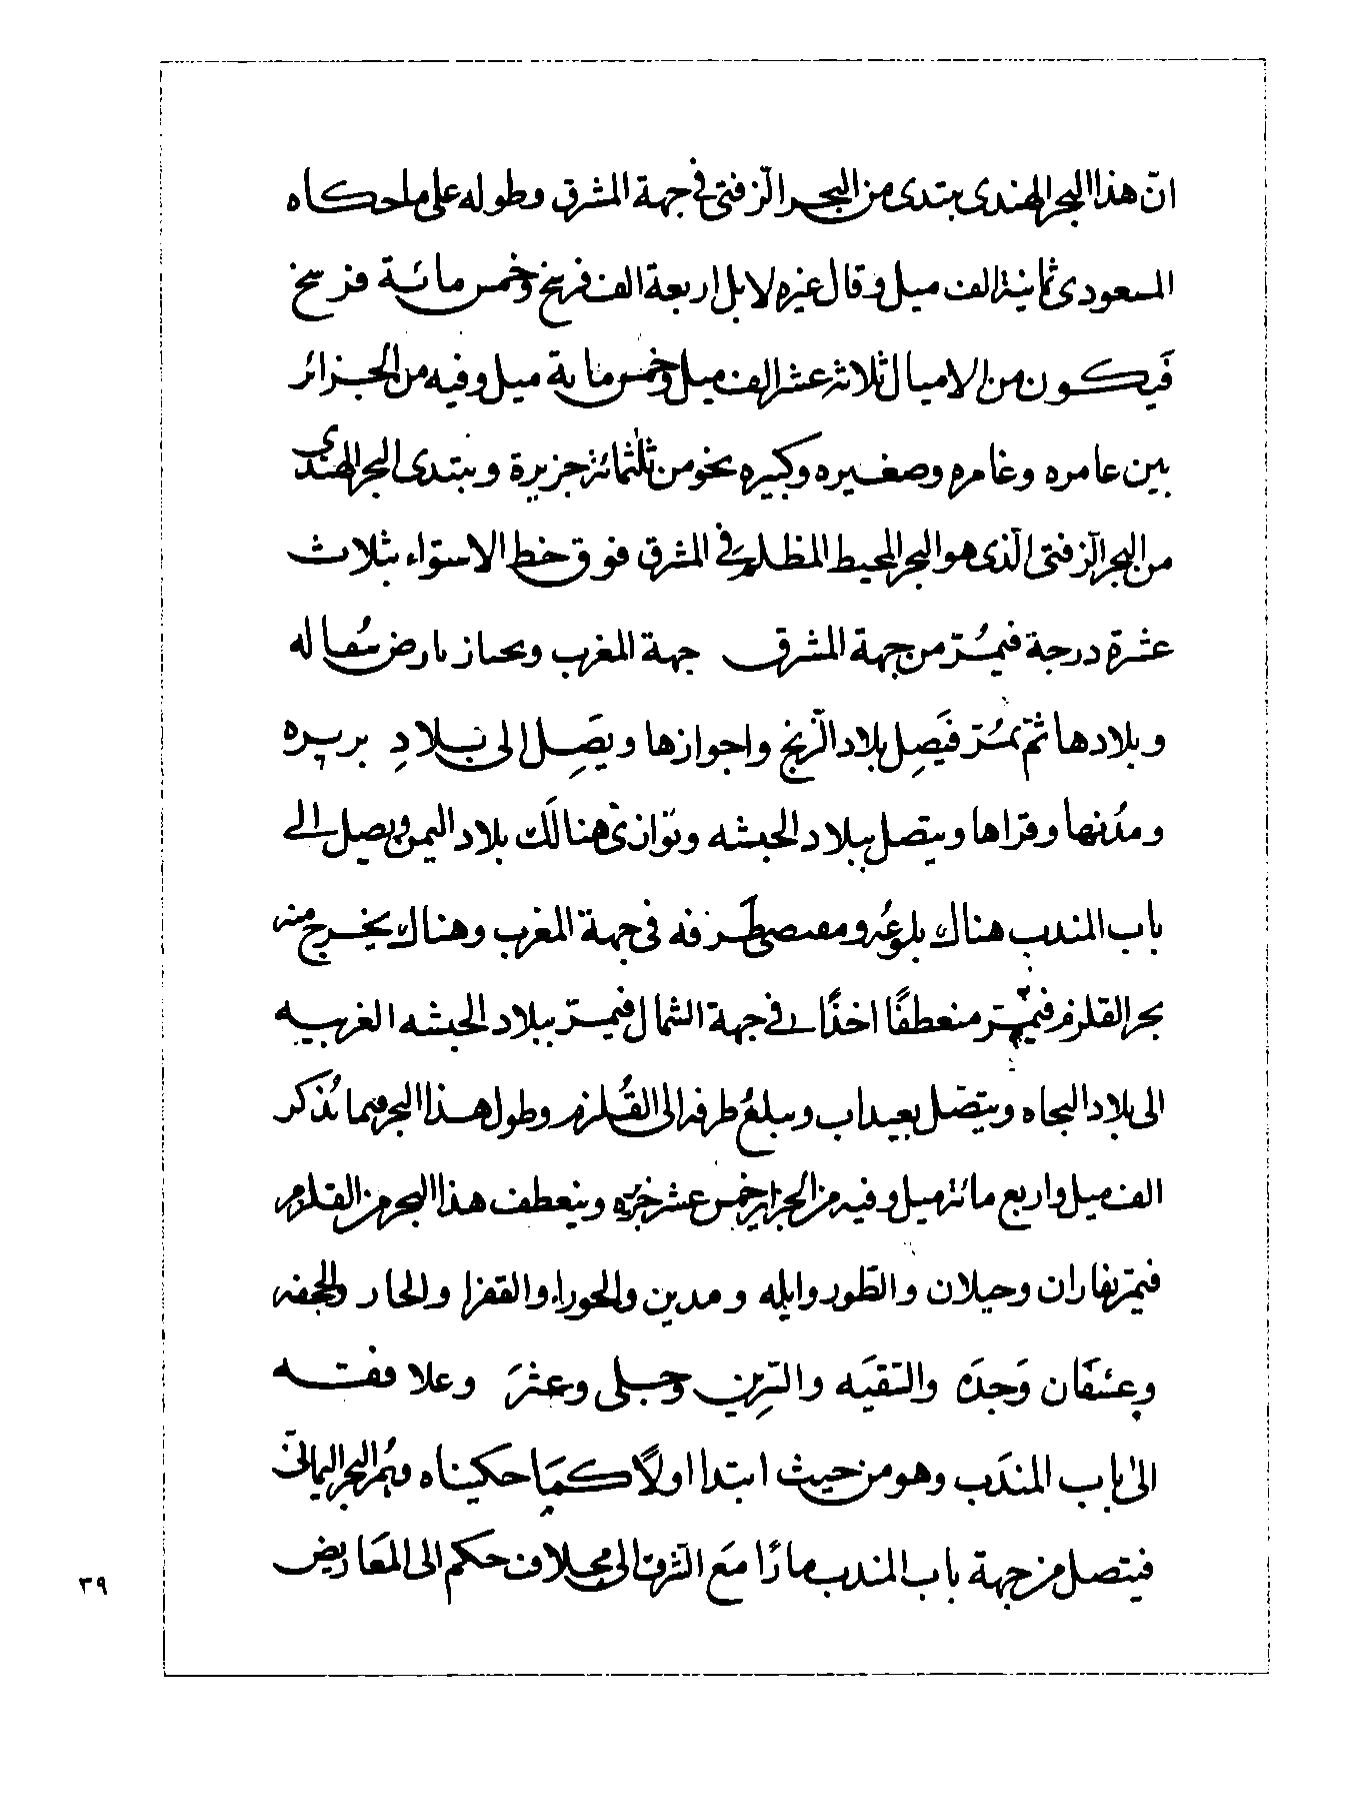 انّ هذا البحر الهندى يبتدى من البحر الزفتى فى جهة المشرق وطوله على ما حكاه
المسعودى ثمانية الف ميل وقال غيره لا بل اربعة الف فرسخ وخمس مائة فرسخ
فَيكون من الاميال ثلاثة عشر الف ميل وخمس ماية ميل وفيه من الجزائر
بين عامره وغامره وصغيره وكبيره نحو من ثلثمائة جزيرة ويبتدى البحر الهندى
من البحر الزفتى الّذى هو البحر المحيط المظلم فى المشرق فوق خط الاستواء بثلاث
عشرة درجة فيمُرّ من جهة المشرق جهة المغرب ويجتاز بارض سُفاله
وبلادها ثمّ يمُرّ فَيَصِل بلاد الزنج واجوازها ويصَِل الى بلادِ بربره
ومُدنها وقراها ويتصل ببلاد الحبشه وتوازى هنالك بلاد اليمن ويصل الى
باب المندب هناك بلوغُه ومقتصى طرفه فى جهة المغرب وهناك يخرج منه
بحر القلزم فيمرّ منعطفًا اخذًا فى جهة الشمال فيمرّ ببلاد الحبشه الغربيه
الى بلاد البجاه ويتصّل بعيداب ويبلغُ طرفه الى القُلزم وطول هذا البحر فيما تُذكر
الف ميل واربع مائة ميل وفيه من الجزاير خمس عشر جزيره وينعطف هذا البحر من القلزم
فيمرّ بفاران وجيلان والطّور وايله ومدين والحوراء والقفزا والجار والجحفه
وعسَفَان وَجدَه والتقيَه والترين وجبلى وعثرَ وعلا فقته
الى باب المندَب وهو من حيث ابتدا اولاً كمَا حكيناه ويمُر البحر اليمانىّ
فيتصل من جهة باب المندب مارًا مَع الشرق الى مخلاف حكم الى المعَاريض
٣٩